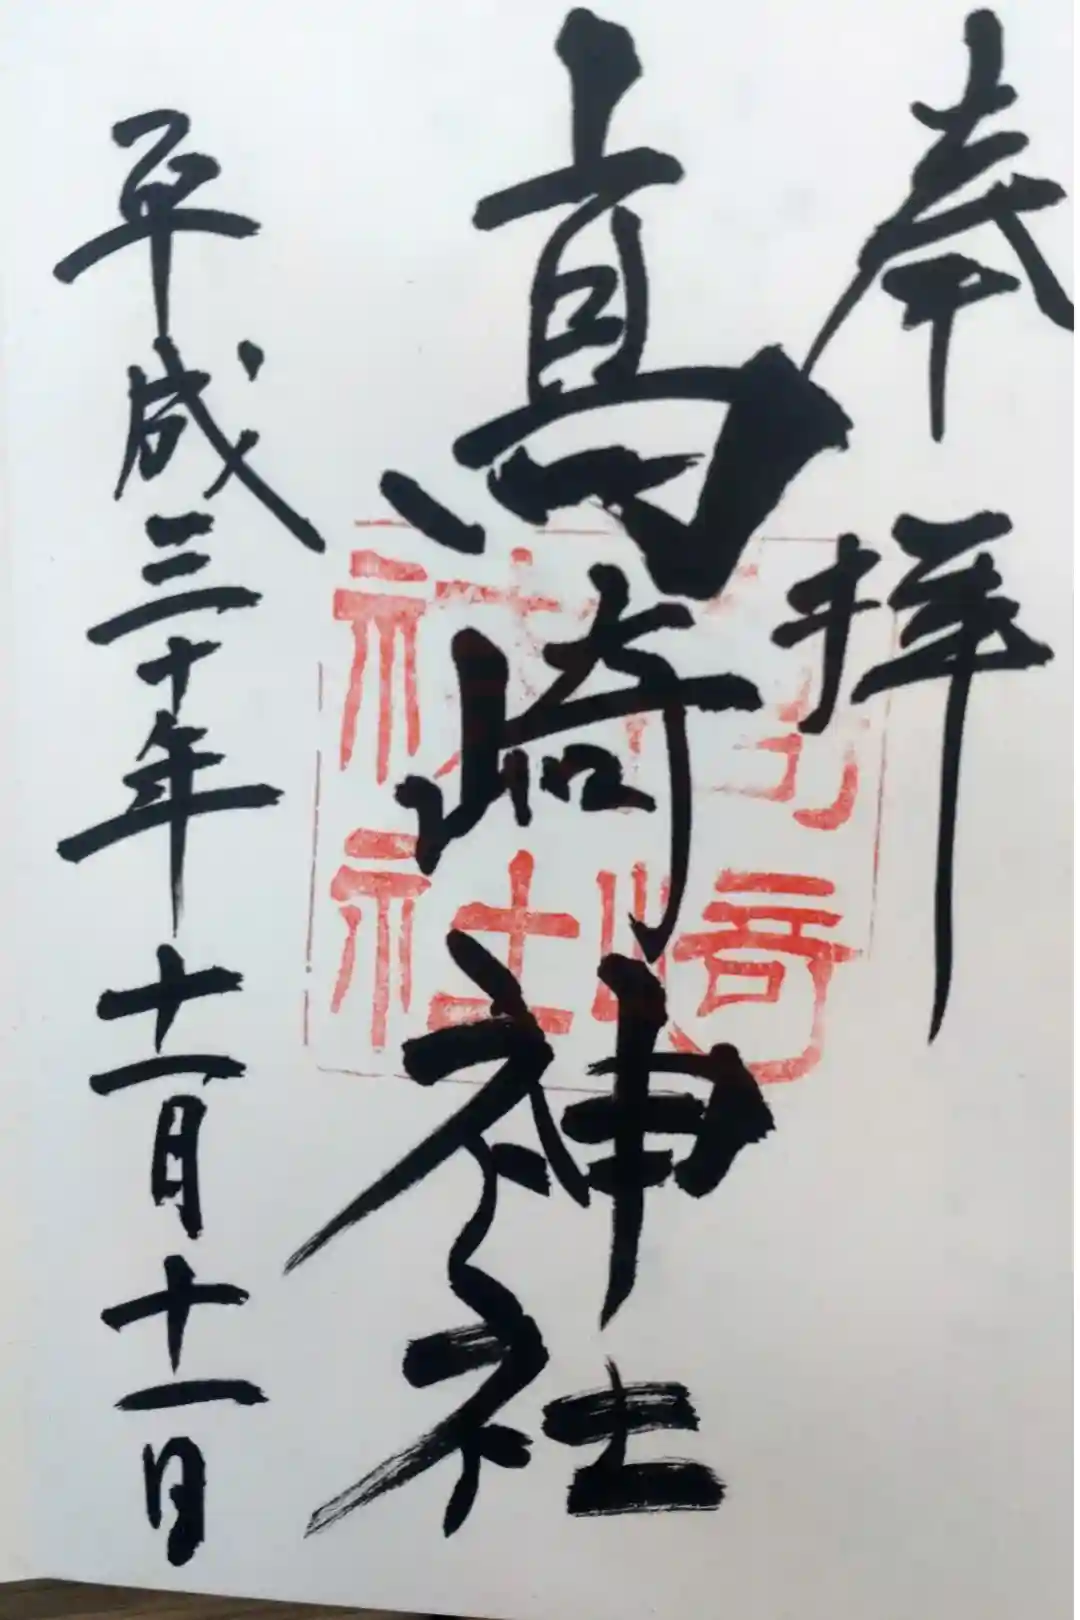 奉拝
高崎神社
高崎神社
平成三十年十一月十一日